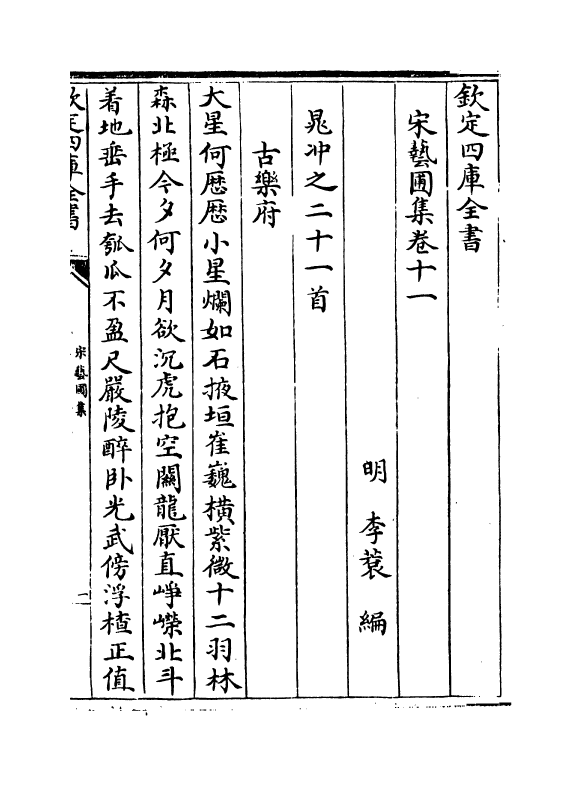 欽定四庫全書
宋藝圃集卷十一
明 李蓘 編
晁冲之二十一首
古樂府
大星何歴歴小星爛如石掖垣崔巍橫紫微十二羽林
森北極今夕何夕月欲沉虎抱空關龍厭直崢嶸北斗
着地垂手去瓠瓜不盈尺嚴陵醉卧光武傍浮楂正值
欽定四庫全書
宋藝圃集
一